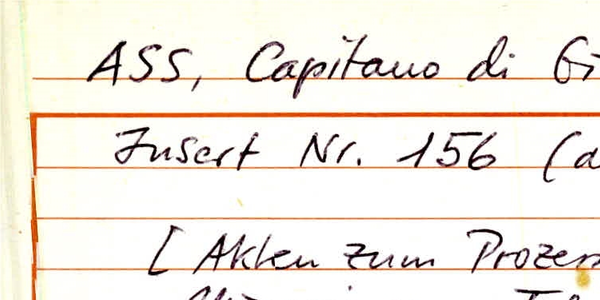 ASS, Capitano di Gi
Insert Nr. 156 (a
[ Akten zum Prozess